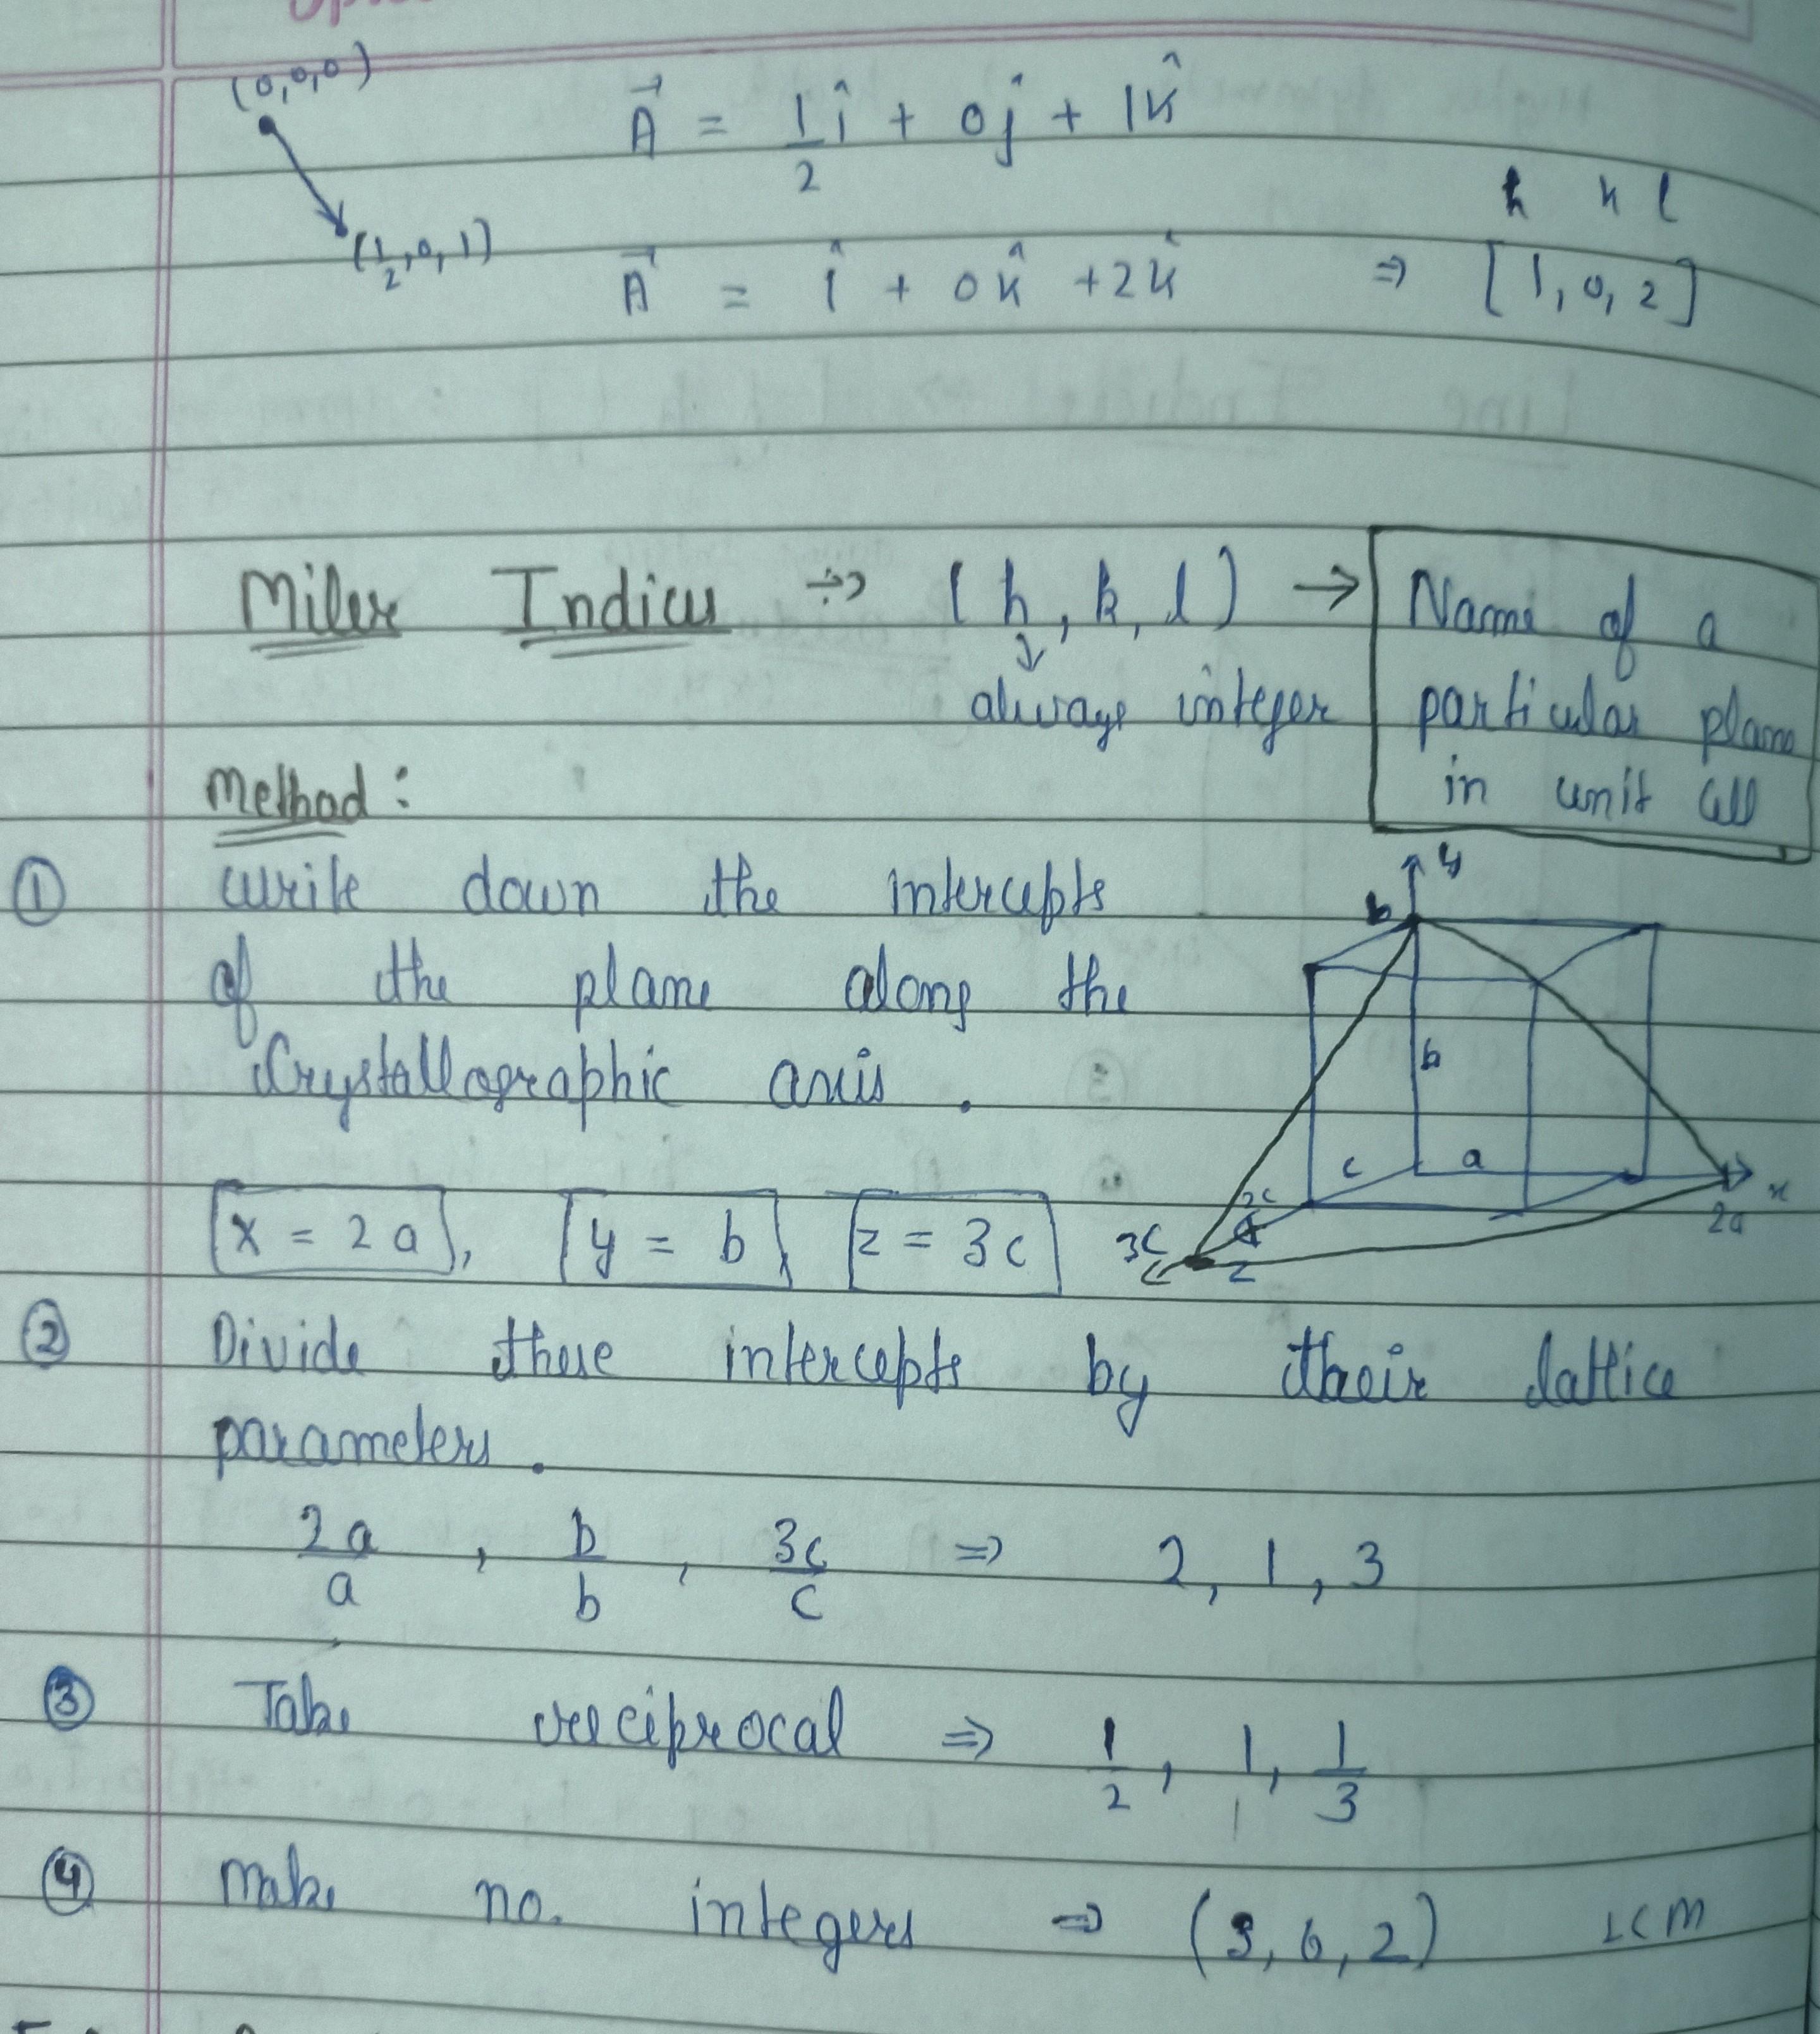 (0,0,0)
A⃗ = 1/2 î + 0ĵ + 1k̂
(1/2,0,1)
h k l
A⃗ = î + 0k̂ + 2k̂ ⇒ [1,0,2]
Miler Indices ÷⇒ (h, k, l) → Name of a
always integer particular plane
in unit cell
Method:
① Write down the intercepts
of the plane along the
Crystallographic axis.
y
b
b
c a
x
2a
2c
3c
z
x = 2a, y = b, z = 3c
② Divide these intercepts by their lattice
parameters.
2a/a , b/b , 3c/c ⇒ 2, 1, 3
③ Take reciprocal ⇒ 1/2, 1/1, 1/3
④ Make no. integers ⇒ (3, 6, 2) LCM